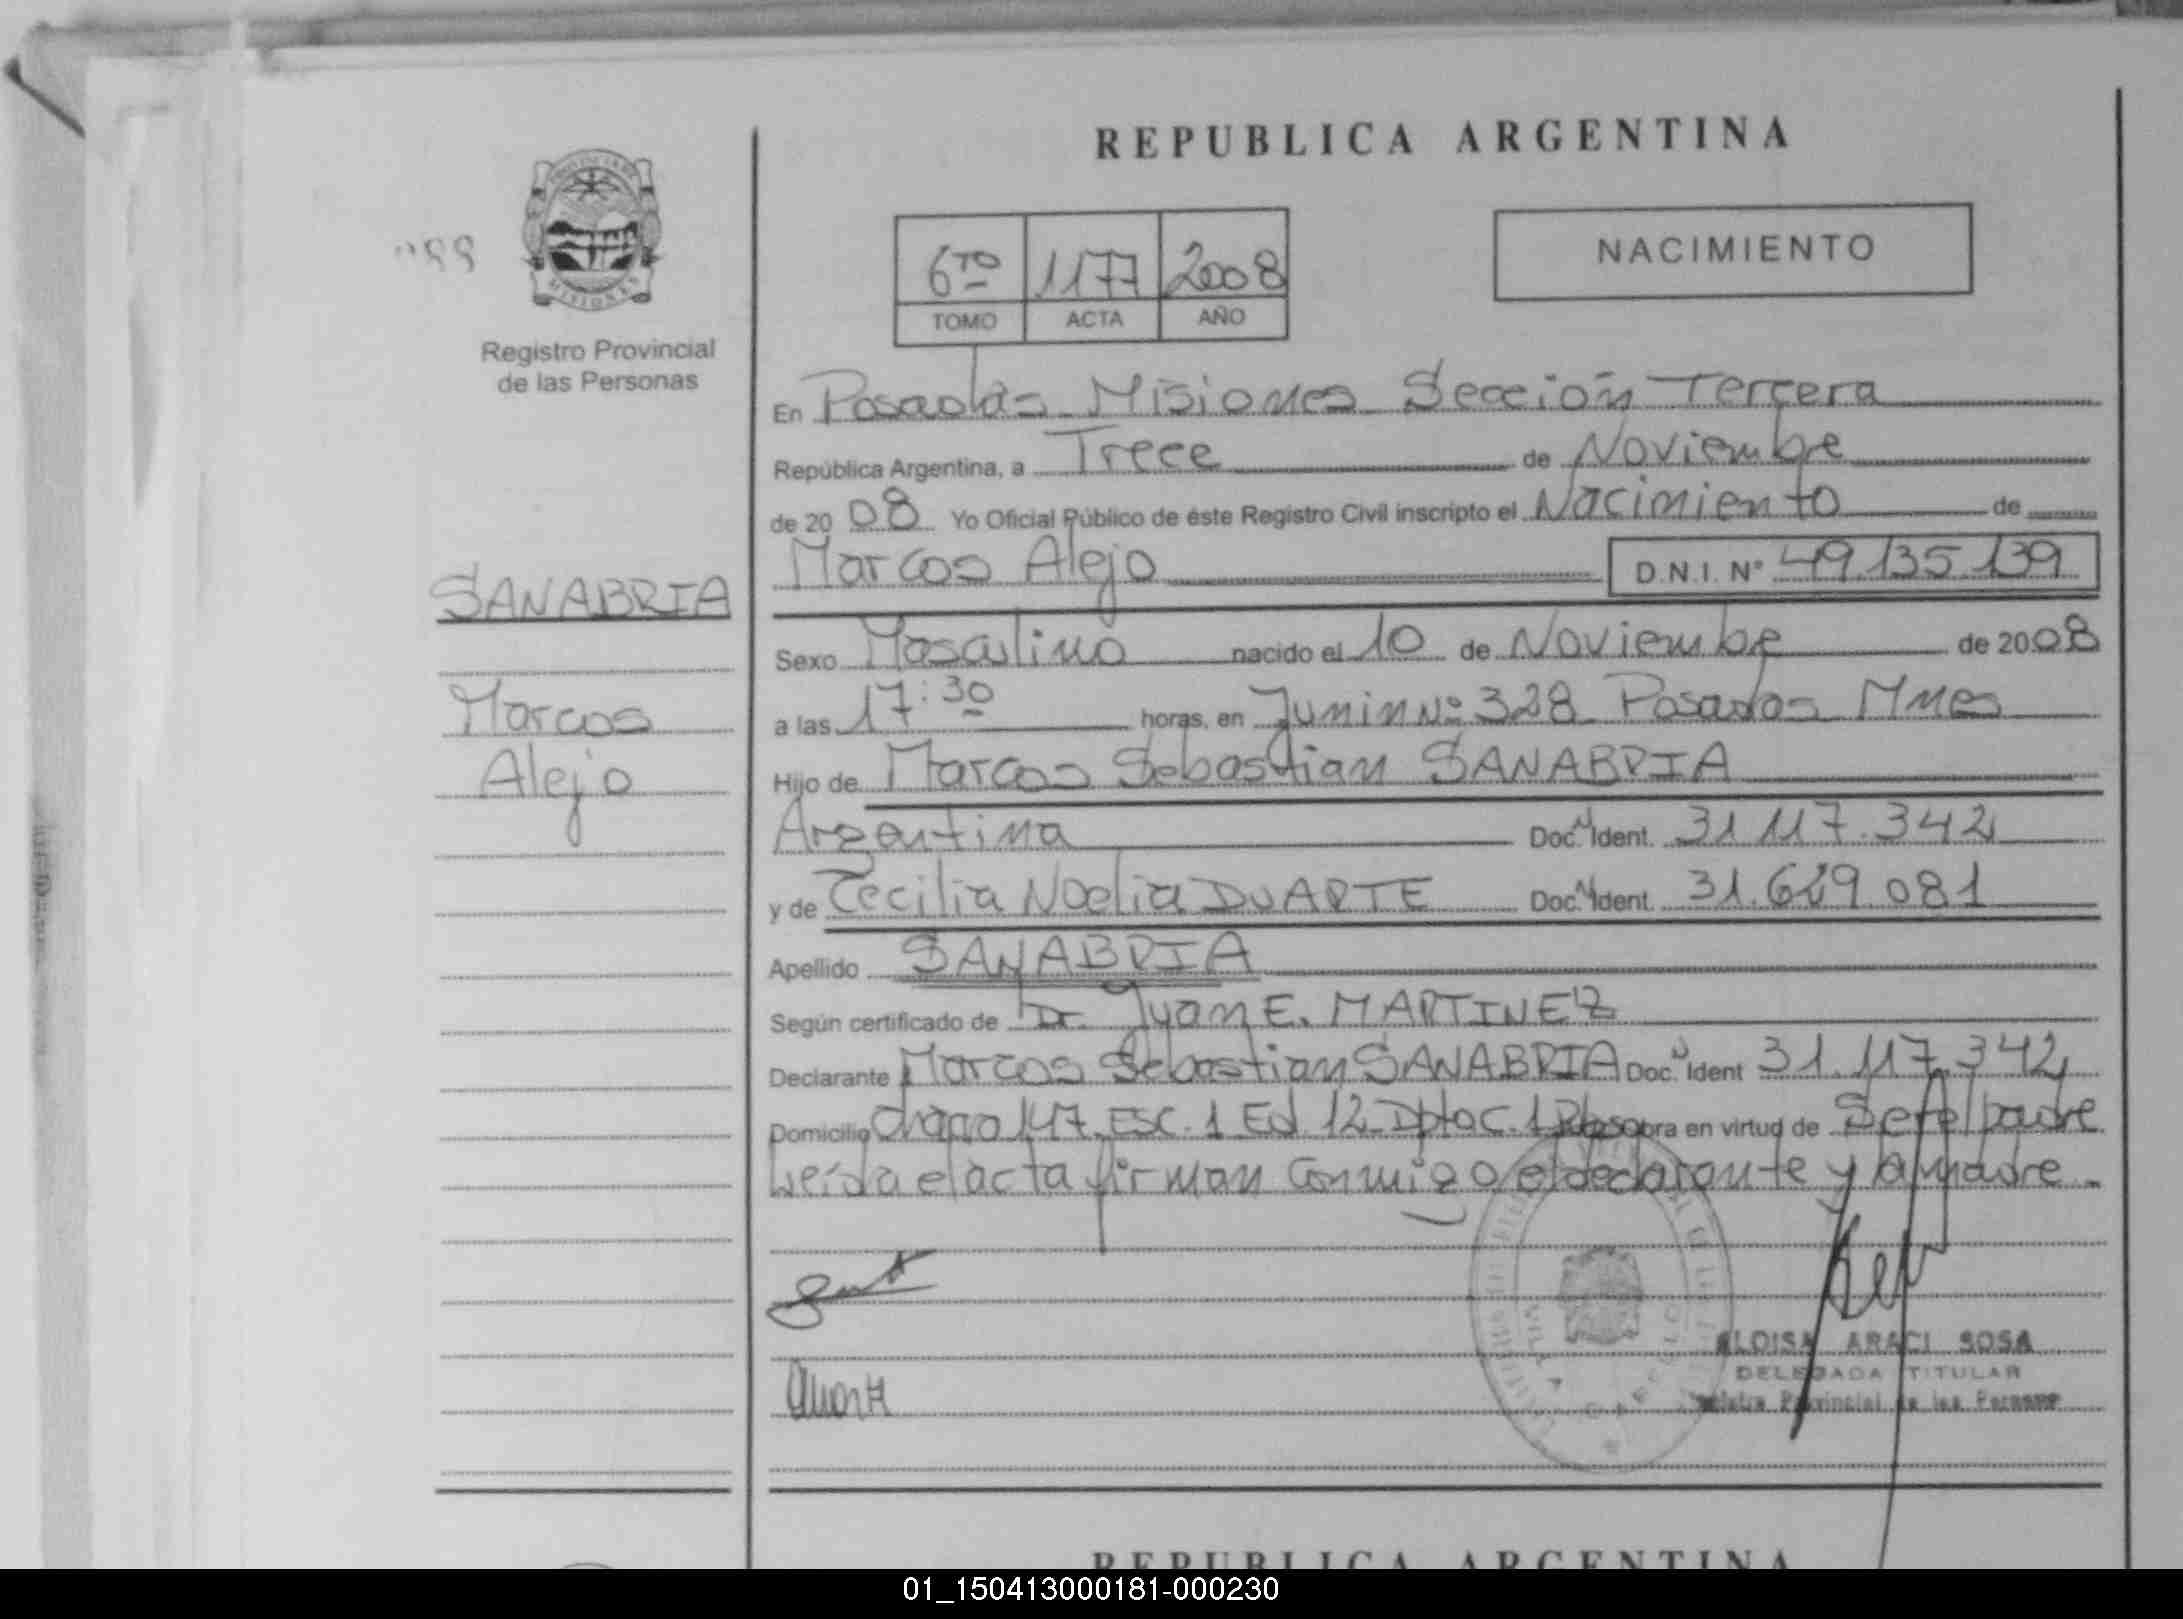 REPUBLICA ARGENTINA
6TO 1177 2008
TOMO ACTA AÑO
NACIMIENTO
Registro Provincial
de las Personas
SANABRIA
Marcos
Alejo
En Posadas Misiones Sección Tercera
República Argentina, a Trece de Noviembre
de 2008 Yo Oficial Público de éste Registro Civil inscripto el Nacimiento de
Marcos Alejo D.N.I. Nº 49.135.139
Sexo Masculino nacido el 10 de Noviembre de 2008
a las 17:30 horas, en Junin Nº 328 Posadas Mnes
Hijo de Marcos Sebastian SANABRIA
Argentina Doc. Ident. 31.117.342
y de Cecilia Noelia DUARTE Doc. Ident. 31.629.081
Apellido SANABRIA
Según certificado de Dr. Juan E. MARTINEZ
Declarante Marcos Sebastian SANABRIA Doc. Ident 31.117.342
Domicilio 147 Esc. 1 Ed. 12 Dpto C. obra en virtud de Ser el padre
Leída el acta firman conmigo el declarante y la madre.
ELOISA ARACI SOSA
DELEGADA TITULAR
Registro Provincial de las Personas
REPUBLICA ARGENTINA
01_150413000181-000230